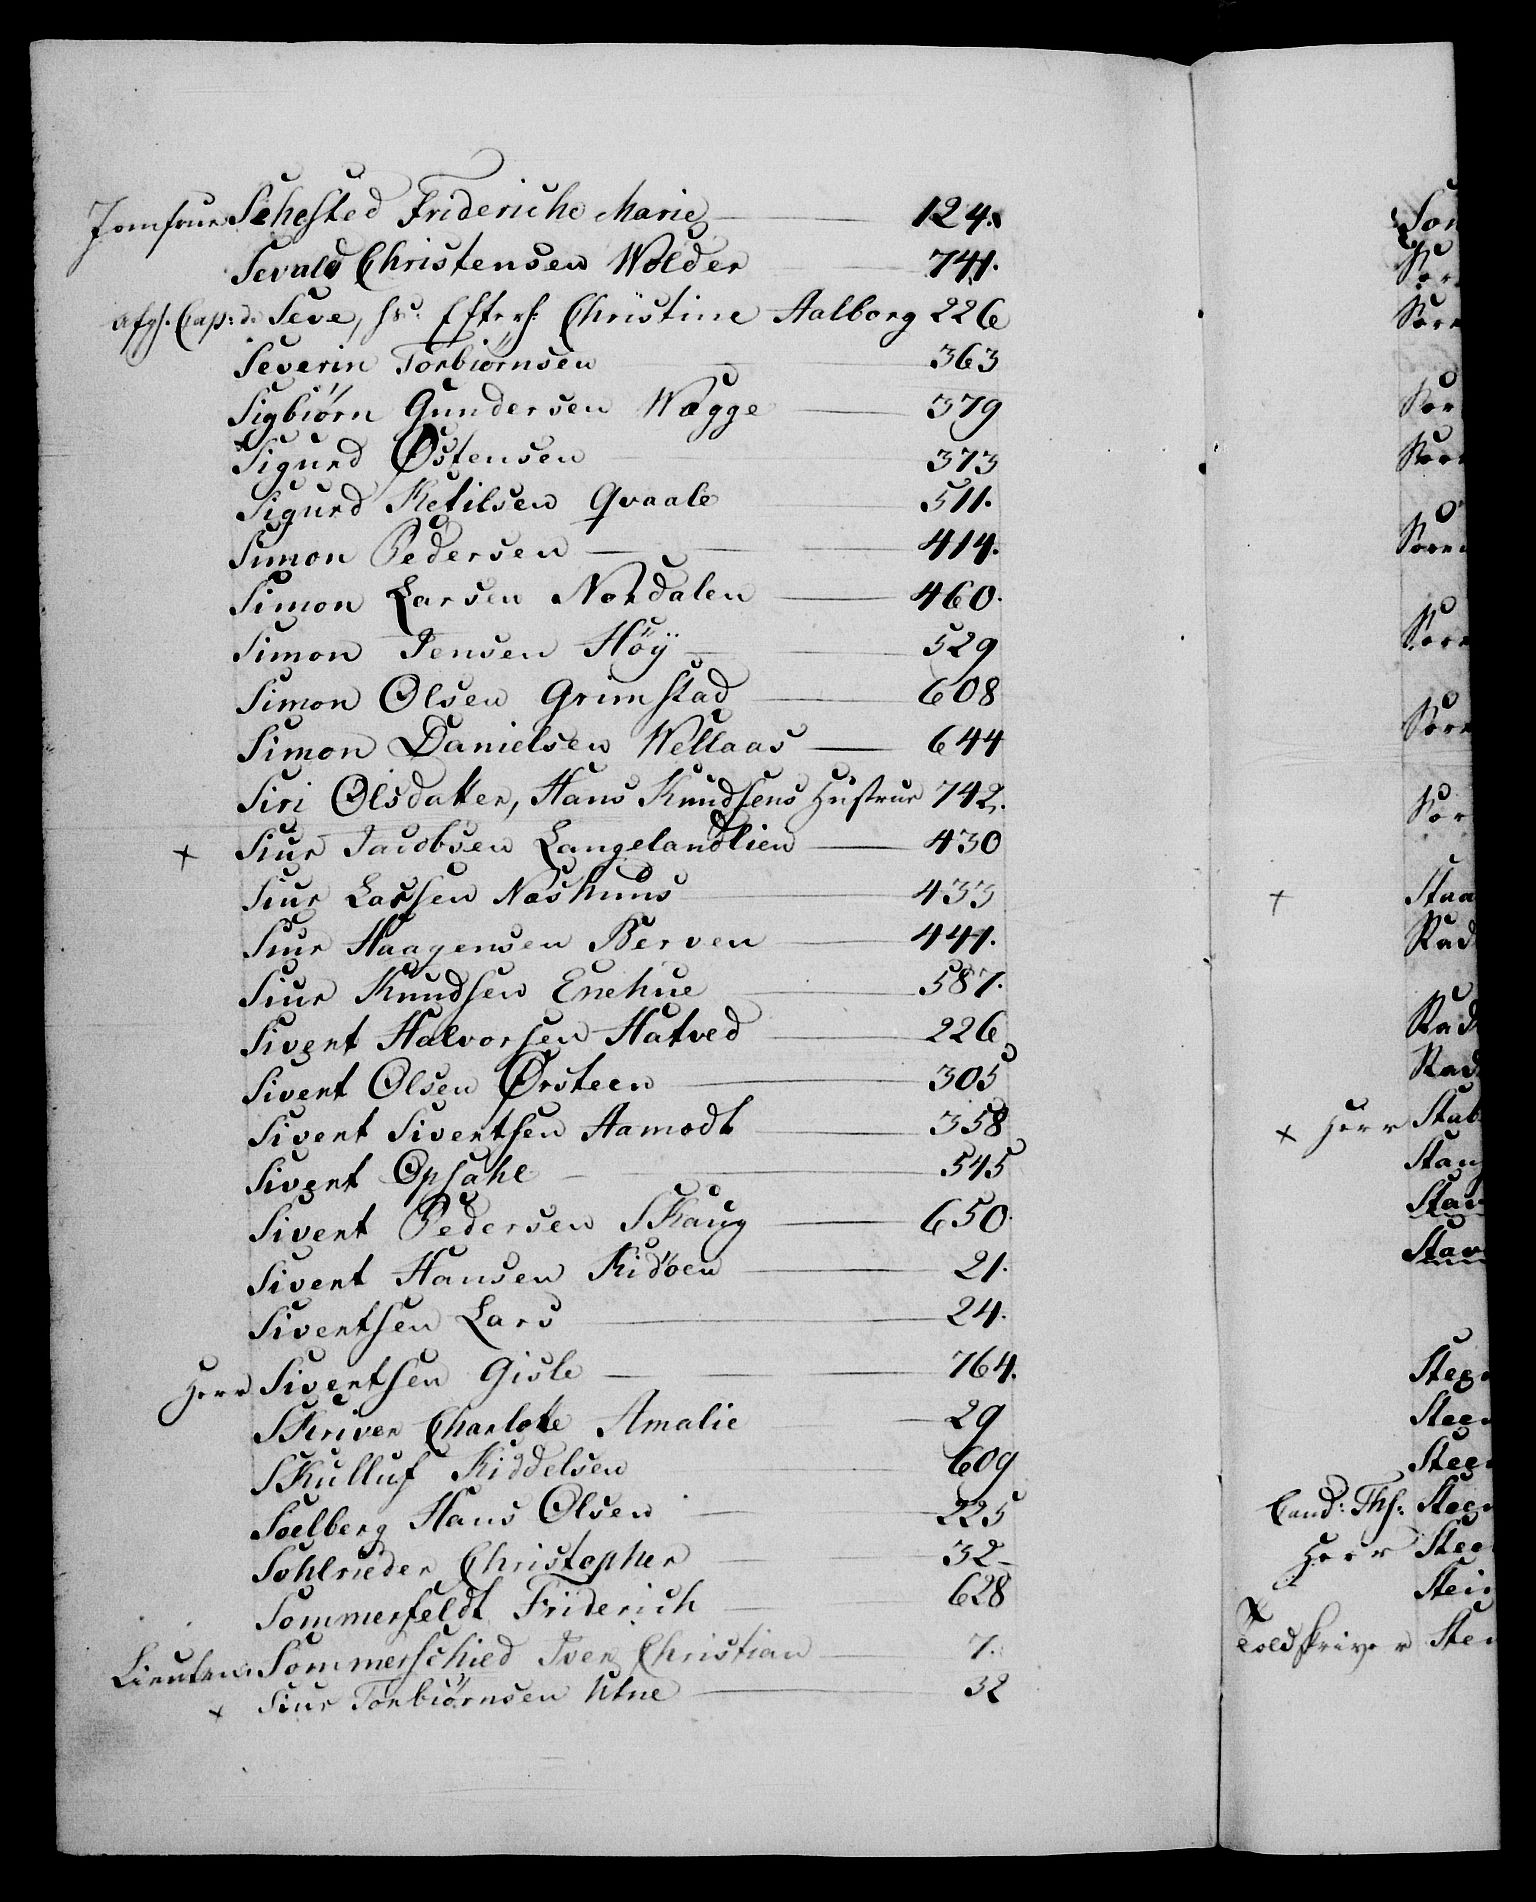 Jomfrue Sehested Friderich Marie 124.
Sevald Christensen Wolder 741.
afgh. Cap: d. Seve, hs: Efterl: Christine Aalborg 226
Severin Torbiörnsen 363
Sigbiörn Gundersen Wægge 379
Sigurd Østensen 373
Sigurd Ketilsen Qvaale 511.
Simon Pedersen 414.
Simon Larsen Nordalen 460.
Simon Jensen Höÿ 529
Simon Olsen Grimstad 608
Simon Danielsen Wellaas 644
Siri Olsdatter, Hans Knudsens Hustrue 742.
+ Siur Jacobsen Langelandlien 430
Siur Larsen Næshuus 433
Siur Haagensen Berven 441.
Siur Knudsen Enehue 587.
Sivert Halvorsen Hatved 226
Sivert Olsen Ørsteen 305
Sivert Sivertsen Aamodt 358
Sivert Opsahl 545
Sivert Pedersen Skaug 650.
Sivert Hansen Ridöen 21.
Sivertsen Lars 24.
Herr Sivertsen Gisle 764.
Skriver Charlotte Amalie 29
Skulluf Kiddelsen 609
Soelberg Hans Olsen 225
Sohlrieder Christopher 32
Sommerfeldt Friderich 628
Lieuten: Sommerschied Iver Christian 7.
+ Siur Torbiörnsen Utne 32
Sor
Sor
Sore
Sor
Sore
Soren
Sore
Sore
Sor
+ Staa
Stad
Stad
Stad
+ Herr Stab
Stang
Stav
Stav
Steg
Steen
Steen
Cand: Ths: Steen
Herr Stee
Stei
x Toldskriver Ste